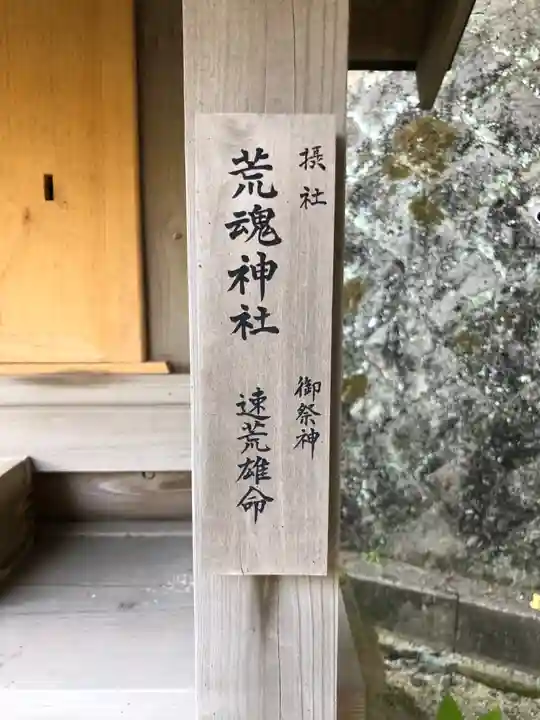 摂社
御祭神
荒魂神社
速荒雄命